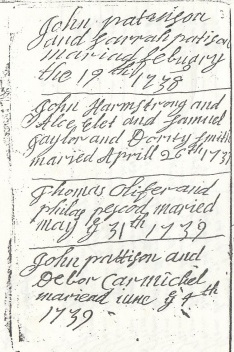 John pattison
and Sarrah patison
maried Febuary
the 19th 1738
John Harmstrong and
Alce Elet and Samuel
Taylor and Dority Smith
maried Aprill 26th 173
Thomas Olifer and
philay pescod maried
may ye 31th 1739
John pattison and
Debor Carmichel
maried iune ye 4th
1739